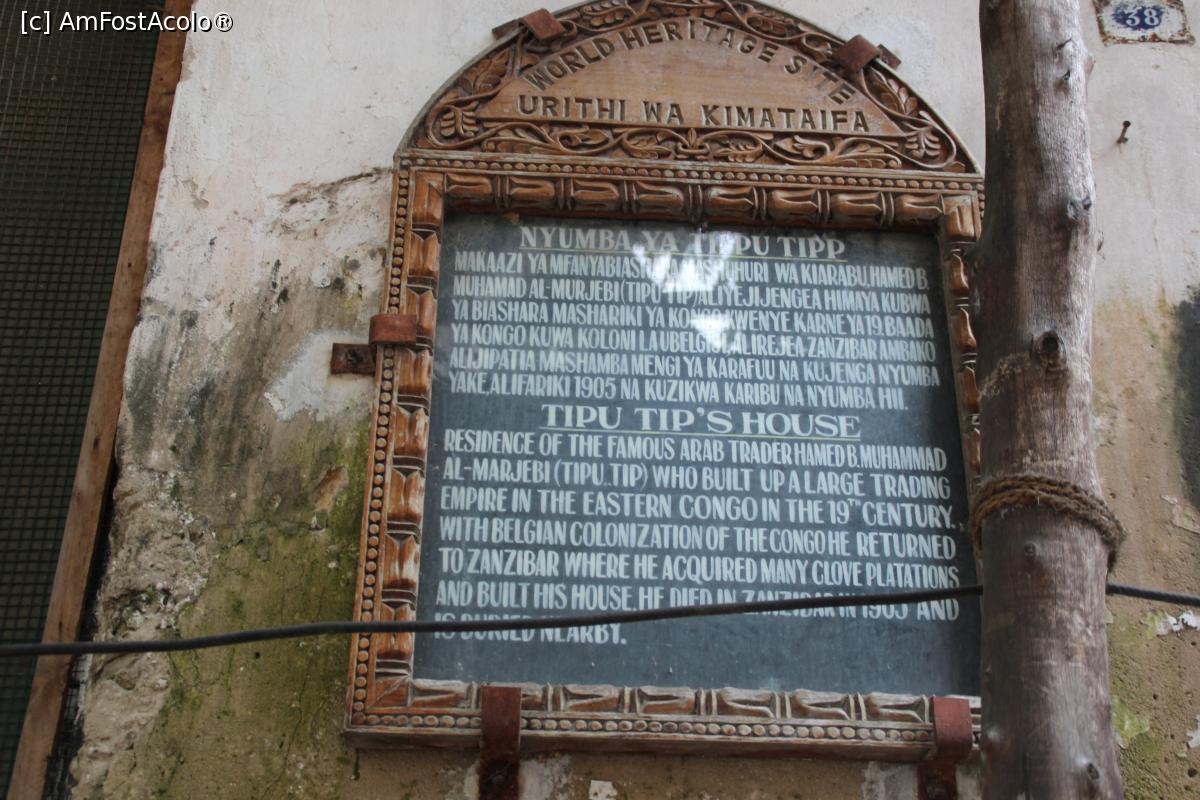 [c] AmFostAcolo®
38
WORLD HERITAGE SITE
URITHI WA KIMATAIFA
NYUMBA YA TIPPU TIPP
MAKAAZI YA MFANYABIASHARA MASHUHURI WA KIARABU, HAMED B.
MUHAMAD AL-MURJEBI (TIPU TIP) ALIYEJIJENGEA HIMAYA KUBWA
YA BIASHARA MASHARIKI YA KONGO KWENYE KARNE YA 19. BAADA
YA KONGO KUWA KOLONI LA UBELGIGI, ALIREJEA ZANZIBAR AMBAKO
ALIJIPATIA MASHAMBA MENGI YA KARAFUU NA KUJENGA NYUMBA
YAKE, ALIFARIKI 1905 NA KUZIKWA KARIBU NA NYUMBA HII.
TIPU TIP'S HOUSE
RESIDENCE OF THE FAMOUS ARAB TRADER HAMED B. MUHAMMAD
AL-MARJEBI (TIPU..TIP) WHO BUILT UP A LARGE TRADING
EMPIRE IN THE EASTERN CONGO IN THE 19TH CENTURY.
WITH BELGIAN COLONIZATION OF THE CONGO HE RETURNED
TO ZANZIBAR WHERE HE ACQUIRED MANY CLOVE PLATATIONS
AND BUILT HIS HOUSE. HE DIED IN ZANZIBAR IN 1905 AND
IS BURIED NEARBY.